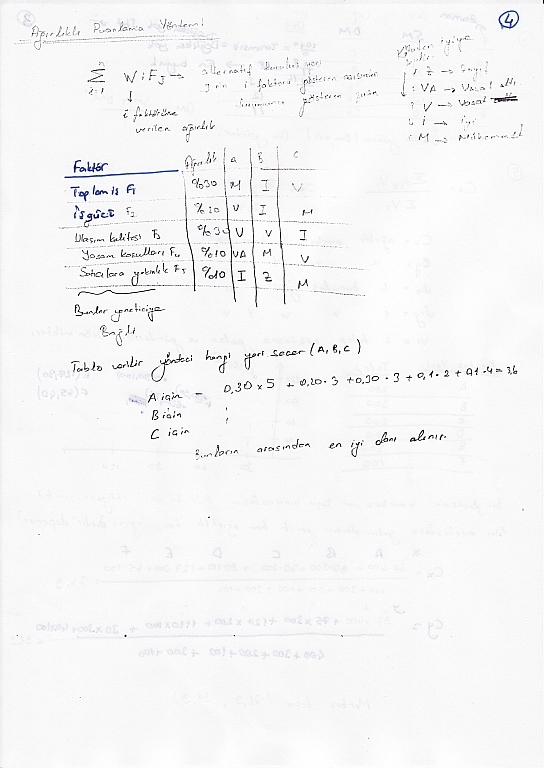 4
Ağırlıklı Puanlama Yöntemi
n
Σ Wi Fij → alternatif kuruluş yeri
i=1
j nin i faktörü gösteren
i faktörüne gösteren puan
verilen ağırlık
Kötüden iyiye
1: Z → Zayıf
2: VA → Vasat altı
3: V → Vasat
4: i → iyi
5: M → Mükemmel
Faktör Ağırlık A B C
Toplam iş F1 %30 M I V
işgücü F2 %20 V I M
Ulaşım kalitesi F3 %30 V V I
Yaşam koşulları F4 %10 VA M V
Satıcılara yakınlık F5 %10 I Z M
Bunlar yöneticiye
Bağlı
Tablo verilir yönetici hangi yeri seçer (A, B, C)
A için = 0,30 x 5 + 0,20 · 3 + 0,30 · 3 + 0,1 · 2 + 0,1 · 4 = 3,6
B için
C için
Bunların arasından en iyi olanı alınır.